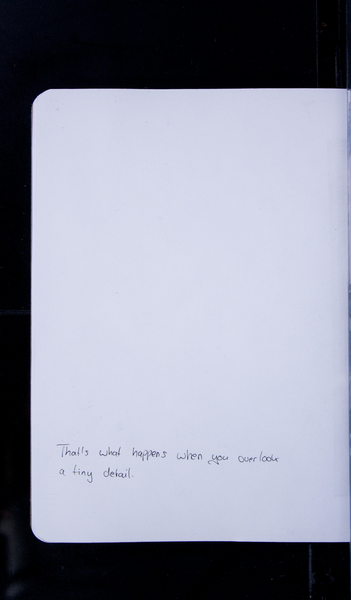 That's what happens when you overlook
a tiny detail.